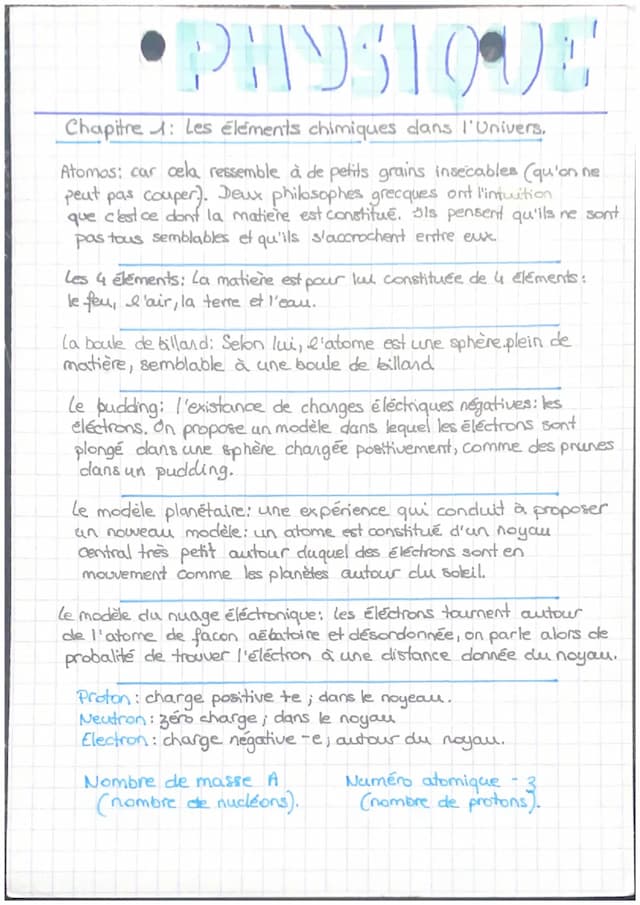 PHYSIQUE
Chapitre 1: Les éléments chimiques dans l'Univers.
Atomos: car cela ressemble à de petits grains insécables (qu'on ne
peut pas couper). Deux philosophes grecques ont l'intuition
que c'est ce dont la matière est constitué. Ils pensent qu'ils ne sont
pas tous semblables et qu'ils s'accrochent entre eux.
Les 4 éléments: La matière est pour lui constituée de 4 éléments:
le feu, l'air, la terre et l'eau.
La boule de billard: Selon lui, l'atome est une sphère plein de
matière, semblable à une boule de billard.
Le pudding: l'existance de charges éléctriques négatives: les
éléctrons. On propose un modèle dans lequel les éléctrons sont
plongé dans une sphère chargée positivement, comme des prunes
dans un pudding.
Le modèle planétaire: une expérience qui conduit à proposer
un nouveau modèle: un atome est constitué d'un noyau
central très petit autour duquel des éléctrons sont en
mouvement comme les planètes autour du soleil.
Le modèle du nuage éléctronique: les éléctrons tournent autour
de l'atome de façon aébatoire et désordonnée, on parle alors de
probalité de trouver l'éléctron à une distance donnée du noyau.
Proton: charge positive +e; dans le noyeau.
Neutron: zéro charge; dans le noyau
Electron: charge négative -e; autour du noyau.
Nombre de masse A
(nombre de nucléons).
Numéro atomique - Z
(nombre de protons).